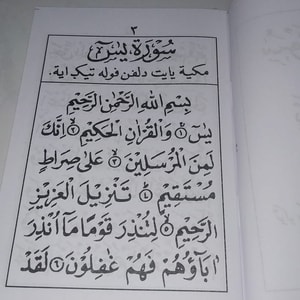 ٣
سُوْرَةُ يٰسٓ
مكية يايت دلفن فوله تيݢ اية.
بِسْمِ اللهِ الرَّحْمٰنِ الرَّحِيْمِ
يٰسٓ ۝١ وَالْقُرْاٰنِ الْحَكِيْمِ ۝٢ اِنَّكَ
لَمِنَ الْمُرْسَلِيْنَ ۝٣ عَلٰى صِرَاطٍ
مُسْتَقِيْمٍ ۝٤ تَنْزِيْلَ الْعَزِيْزِ
الرَّحِيْمِ ۝٥ لِتُنْذِرَ قَوْمًا مَآ اُنْذِرَ
اٰبَاؤُهُمْ فَهُمْ غٰفِلُوْنَ ۝٦ لَقَدْ